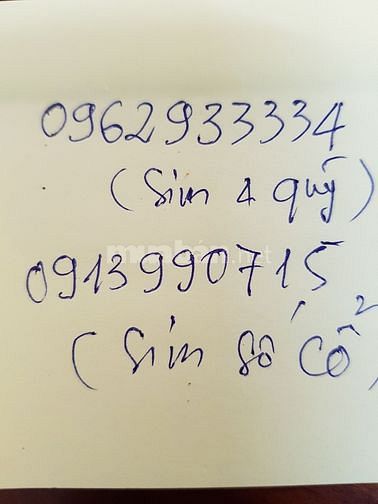 0962933334
(Sim 4 quý)
muaban.net
0913990715
(Sim số cổ)